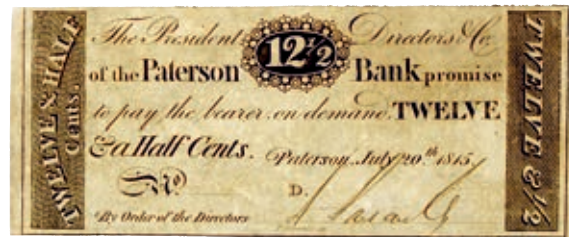 TWELVE & HALF
Cents.
The President Directors & Co.
12 1/2
of the Paterson Bank promise
to pay the bearer on demand TWELVE
& a Half Cents. Paterson July 20th 1815
No
D.
By Order of the Directors
TWELVE 2 1/2